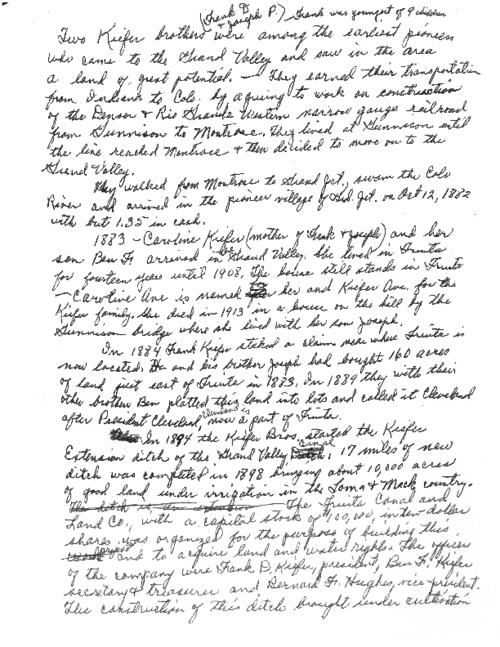 (Frank D & Joseph P.) Frank was youngest of 9 children
Two Kiefer brothers were among the earliest pioneers
who came to the Grand Valley and saw in the area
a land of great potential. — They earned their transportation
from to Colo. by agreeing to work on construction
of the Denver & Rio Grande Western narrow gauge railroad
from Gunnison to Montrose. They lived at Gunnison until
the line reached Montrose & then decided to move on to the
Grand Valley.
They walked from Montrose to Grand Jct., swam the Colo
River and arrived in the pioneer village of Grd. Jct. on Oct 12, 1882
with but 1.35 in cash.
1883 - Caroline Kiefer (mother of Frank & Joseph) and her
son Ben F. arrived in the Grand Valley. She lived in Fruita
for fourteen years until 1908. The house still stands in Fruita
— Caroline Ave is named for her and Kiefer Ave. for the
Kiefer family. She died in 1913 in a house on the hill by the
Gunnison bridge where she lived with her son Joseph.
In 1884 Frank Kiefer staked a claim near where Fruita is
now located. He and his brother Joseph had bought 160 acres
of land just east of Fruita in 1883. In 1889 they with their
other brother Ben platted this land into lots and called it Cleveland
after President Cleveland, Cleveland is now a part of Fruita.
In 1894 the Kiefer Bros. started the Kiefer
Extension ditch of the Grand Valley Canal Ditch: 17 miles of new
ditch was completed in 1898 bringing about 10,000 acres
of good land under irrigation in the Loma & Mack country.
The ditch is an The Fruita Canal and
Land Co., with a capital stock of 400,000, in ten dollar
shares was organized for the purpose of building this
and to acquire land and water rights. The officers
of the company were Frank D. Kiefer, president, Ben F. Kiefer
secretary & treasurer and Bernard F. Hughes, vice-president.
The construction of this ditch brought under cultivation